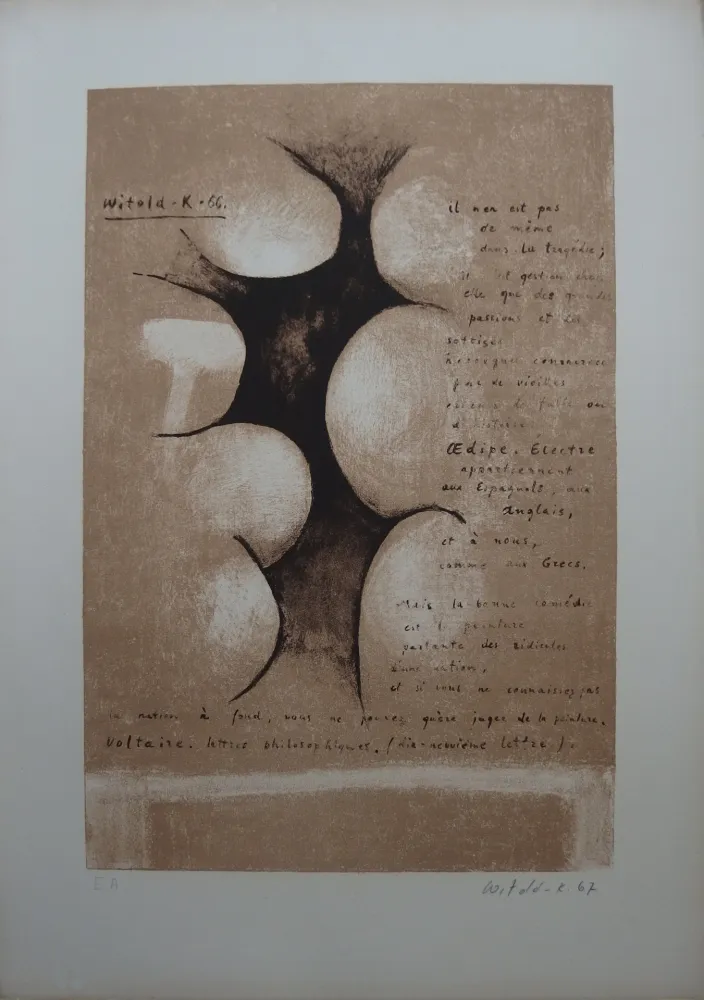 Witold-K-66.
il n'en est pas
de même
dans la tragédie;
il gest
elle que des grandes
passions et des
sottises
consacrées
par de vieilles
de fable ou
d'histoire.
Œdipe, Électre
appartiennent
aux Espagnols, aux
Anglais,
et à nous,
comme aux Grecs.
Mais la bonne comédie
est la peinture
parlante des ridicules
d'une nation,
et si vous ne connaissez pas
la nation à fond, vous ne pouvez guère juger de la peinture.
Voltaire. lettres philosophiques. (dix-neuvième lettre).
E A
Witold-K. 67